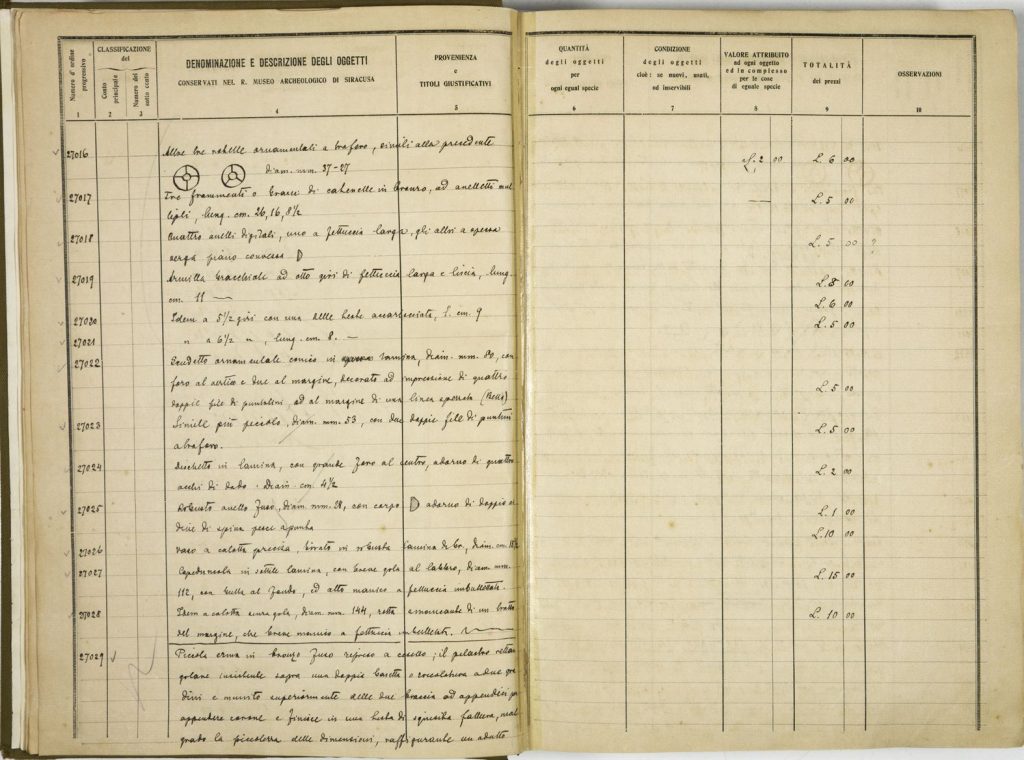 Numero d'ordine progressivo
CLASSIFICAZIONE
del
Conto principale
Numero del sotto conto
DENOMINAZIONE E DESCRIZIONE DEGLI OGGETTI
CONSERVATI NEL R. MUSEO ARCHEOLOGICO DI SIRACUSA
PROVENIENZA
e
TITOLI GIUSTIFICATIVI
QUANTITÀ
degli oggetti
per
ogni egual specie
CONDIZIONE
degli oggetti
cioè: se nuovi, usati,
od inservibili
VALORE ATTRIBUITO
ad ogni oggetto
ed in complesso
per le cose
di eguale specie
TOTALITÀ
dei prezzi
OSSERVAZIONI
1 2 3 4 5 6 7 8 9 10
27016 Altre tre rotelle ornamentali a traforo, simili alla precedente L. 2 00 L. 6 00
diam. mm. 37-27
27017 Tre frammenti o tracci di catenelle in bronzo, ad anelletti mul L. 5 00
tipli, lung. cm. 26, 16, 8½
27018 Quattro anelli digitali, uno a fettuccia larga, gli altri a spessa L. 5 00 ?
verga piano convessa D
27019 Armilla bracchiale ad otto giri di fettuccia larga e liscia, lung. L. 8 00
cm. 11
27020 Idem a 5 1/2 giri con una delle teste accartocciata, l. cm. 9 L. 6 00
27021 " a 6½ " , lung. cm. 8. — L. 5 00
27022 Scudetto ornamentale conico in lamina, diam. mm. 80, con
foro al vertice e due al margine, decorato ad impressione di quattro
doppie file di puntolini, ed al margine di una linea spezzata (Bello) L. 5 00
27023 Simile più piccolo, diam. mm. 53, con due doppie file di puntini L. 5 00
a traforo.
27024 Dischetto in lamina, con grande foro al centro, adorno di quattro L. 2 00
occhi di dado. Diam. cm. 4½
27025 Robusto anello fuso, diam. mm. 28, con corpo D adorno di doppio or L. 1 00
dine di spina pesce a punta
27026 Vaso a calotta precisa, tirato in robusta lamina di br., diam. cm. L. 10 00
27027 Capeduncola in sottile lamina, con breve gola al labbro, diam. mm. L. 15 00
112, con bulla al fondo, ed alto manico a fettuccia imbullettato.
27028 Idem a calotta senza gola, diam. mm. 144, rotta e mancante di un tratto L. 10 00
del margine, che breve manico a fettuccia imbullettata.
27029 Piccola erma in bronzo fuso ripreso a cesello; il pilastro rettan
golare insistente sopra una doppia basetta o zoccolatura a due gra
dini e munito superiormente delle due braccia ad appendici per
appendere corone e finisce in una testa di squisita fattura, mal
grado la piccolezza delle dimensioni, raffigurante un adulto